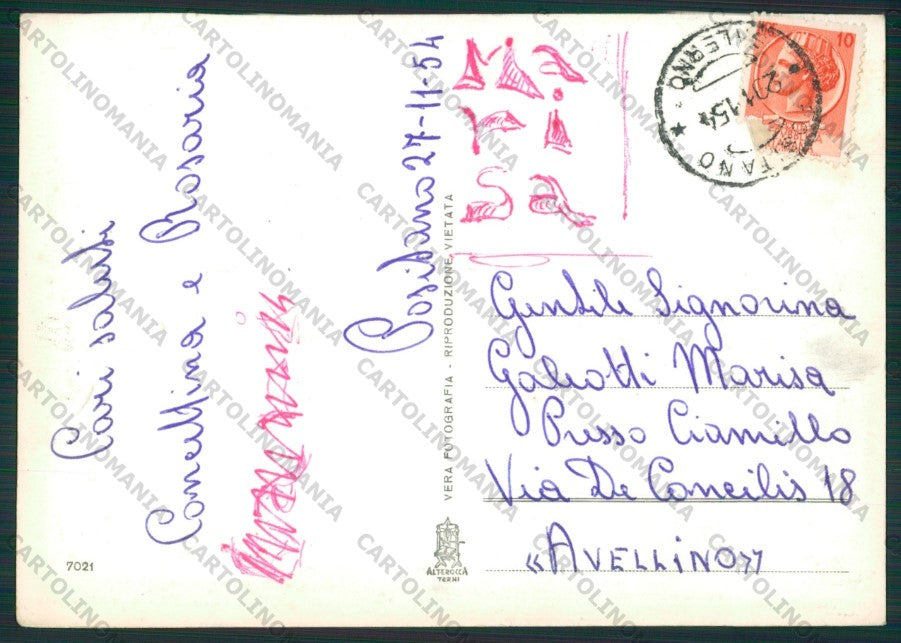 Positano 27-11-54
Cari saluti
Concettina e Rosaria
Ma
ri
sa
10
SALERNO
TANO
Gentile Signorina
Galeotti Marisa
Presso Ciamillo
Via De Concilis 18
«AVELLINO»
VERA FOTOGRAFIA - RIPRODUZIONE VIETATA
ALTEROCCA
TERNI
7021
CARTOLINOMANIA